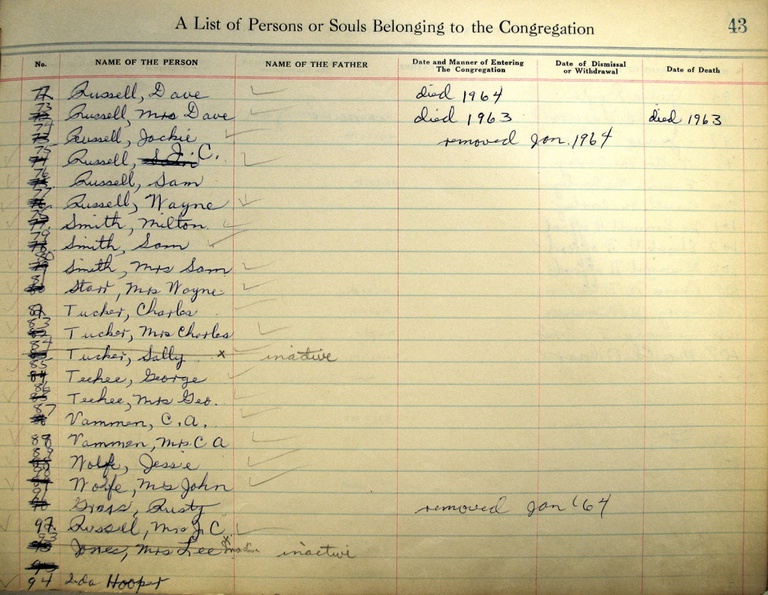 A List of Persons or Souls Belonging to the Congregation 43
No. NAME OF THE PERSON NAME OF THE FATHER Date and Manner of Entering The Congregation Date of Dismissal or Withdrawal Date of Death
Russell, Dave died 1964
73 Russell, Mrs Dave died 1963 died 1963
74 Russell, Jackie removed Jan. 1964
75 Russell, J. C.
76 Russell, Sam
77 Russell, Wayne
78 Smith, Milton
79 Smith, Sam
80 Smith, Mrs Sam
81 Starr, Mrs Wayne
82 Tucker, Charles
83 Tucker, Mrs Charles
84 Tucker, Sally x inactive
85 Teehee, George
86 Teehee, Mrs Geo.
87 Vammen, C. A.
88 Vammen, Mrs. C A
89 Wolfe, Jessie
Wolfe, Mrs John
91 Rusty removed Jan '64
92. Russell, Mrs J. C.
93 Jones, Mrs Lee x inactive inactive
94 Hooper